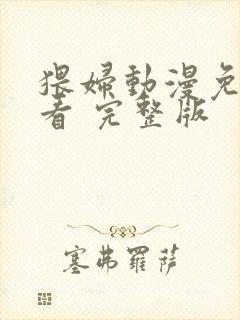 猥婦動漫免
看 完整版
塞弗羅薩